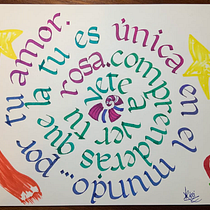 Vete a ver tu rosa. comprenderas que la tu es única en el mundo... por tu amor.